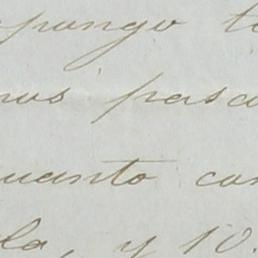 spongo t
nos pasa
uanto con
la, y 10.